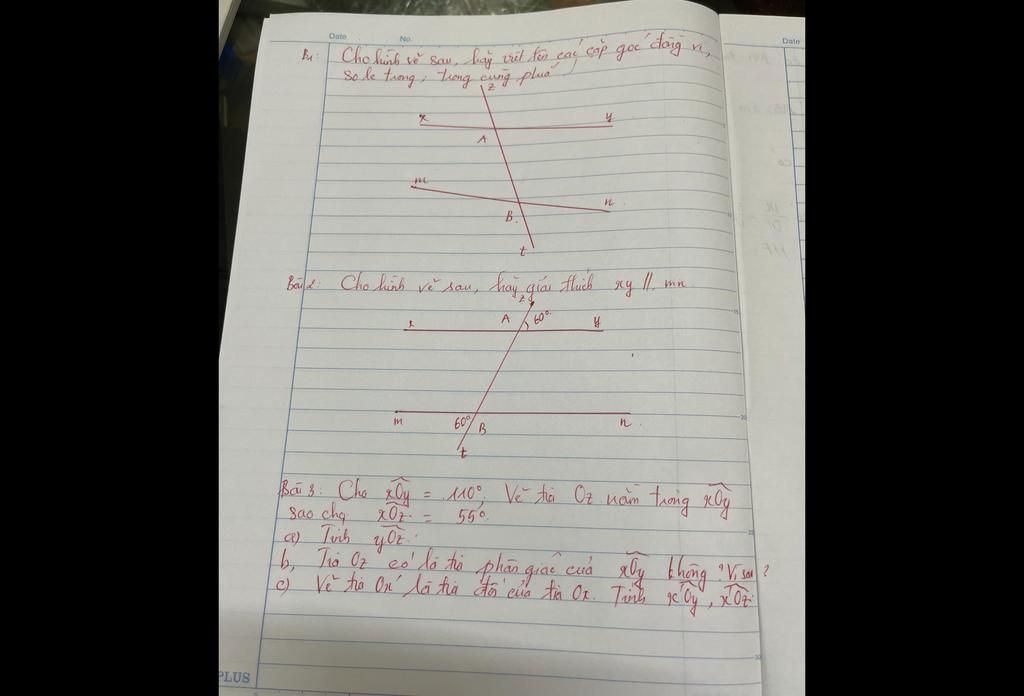 Date No.
Date
B1: Cho hình vẽ sau, hãy viết tên các cặp góc đồng vị,
so le trong, trong cùng phía
z
x y
A
m
n
B
t
Bài 2: Cho hình vẽ sau, hãy giải thích xy // mn
z
A 60°
x y
m 60° B n
t
Bài 3: Cho xOy = 110°, Vẽ tia Oz nằm trong xOy
sao cho xOz = 55°
a) Tính yOz.
b, Tia Oz có là tia phân giác của xOy không? Vì sao?
c) Vẽ tia Ox' là tia đối của tia Ox. Tính x'Oy, x'Oz
PLUS